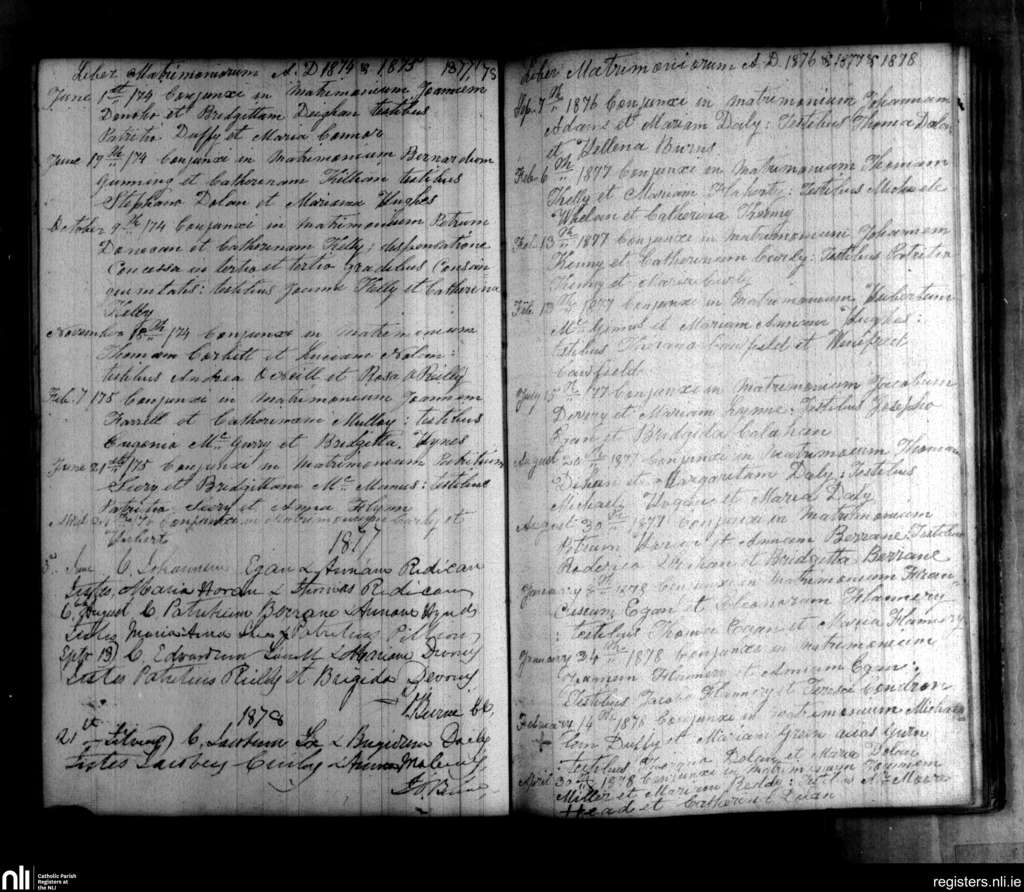 Liber Matrimoniorum A.D 1874 & 1875 1877/78
June 1st /74 Conjunxi in Matrimonium Joannem
Donoho et Bridgittam Deighan testibus
Patritio Duffy et Maria Connor
June 17th /74 Conjunxi in Matrimonium Bernardum
Gunning et Catherenam Killian testibus
Stephano Dolan et Marianna Hughes
October 9th /74 Conjunxi in Matrimonium Petrum
Donogan et Catherenam Kelly: dispensatione
Concessa in tertio et tertio gradibus Consan
guinitatis: testibus Joanne Kelly et Catherena
Kelly
November 18th /74 Conjunxi in Matrimonium
Thomam Corbett et Luciam Nolan:
testibus Andrea O'Neill et Rosa O'Reilly
Feb. 7 /75 Conjunxi in Matrimonium Joannem
Farrell et Catherinam Mulloy: testibus
Eugenio Mc Garry et Bridgitta Hynes
June 21st /75 Conjunxi in Matrimonium Patritium
et Bridgittam Mc Manus: testibus
Patritio et Anna Flynn
Conjunxi in Matrimonium Curly et
Hubert
1877
June C. Johannem Egan & Annam Redican
Testes Maria Horan & Thomas Redican
6 August C. Patritium Berrane & Annam Hynds
Testes Maria Anna & Patritius
Septr 13) C. Edvardum & Mariam Devony
Testes Patritius Reilly et Brigida Devony
J. Beirne CC.
1878
21st C. Jacobum Cox & Brigidam Daly
Testes Jacobus & Anna
J. Beirne
Liber Matrimoniorum A D. 1876 & 1877 & 1878
Sep. 7th 1876 Conjunxi in matrimonium Johannam
Adams et Mariam Daly: Testibus Thoma Dolan
et Hellena Burns
Feb. 6th 1877 Conjunxi in Matrimonium Thomam
Kelly et Mariam Flaherty: Testibus Michaele
Whelan et Catherina
Feb. 13th 1877 Conjunxi in Matrimonium Johannem
Kenny et Catherenam Cowdy: Testibus Patritio
Kenny et Maria
Feb. 13th 1877 Conjunxi in Matrimonium Hubertum
Mc Manus et Mariam Annam Hughes:
testibus Thoma Cawfield et Winifred
Cawfield
July 15th /77 Conjunxi in Matrimonium Jacobum
Dorory et Mariam Lynne. Testibus Josepho
Egan et Bridgida Calahan
August 20th 1877 Conjunxi in Matrimonium Thomam
et Margaritam Daly: Testibus
Michaele Hogan et Maria Daly
August 30th 1877 Conjunxi in Matrimonium
Petrum et Annam Berrane: Testibus
Roderico et Bridgitta Berrane
January 8th 1878 Conjunxi in Matrimonium Fran-
ciscum Egan et Eleonoram Flannery
: testibus Thoma Egan et Maria Flannery
January 24th 1878 Conjunxi in Matrimonium
Joannem Flannery et Annam Egan:
Testibus Jacobo Flannery et Teresa Condron
February 14th 1878 Conjunxi in matrimonium Micha-
lem Duffy et Mariam Green alias Gurn
Testibus Thoma Dolan et Maria Dolan
April 30th 1878 Conjunxi in Matrimonium Joannem
Miller et Mariam Reddy: Testibus
Head et Catherine
nli
Catholic Parish
Registers at
the NLI
registers.nli.ie